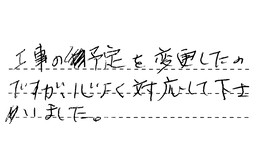 工事の予定を変更したの
ですが、心よく対応して下さ
いました。